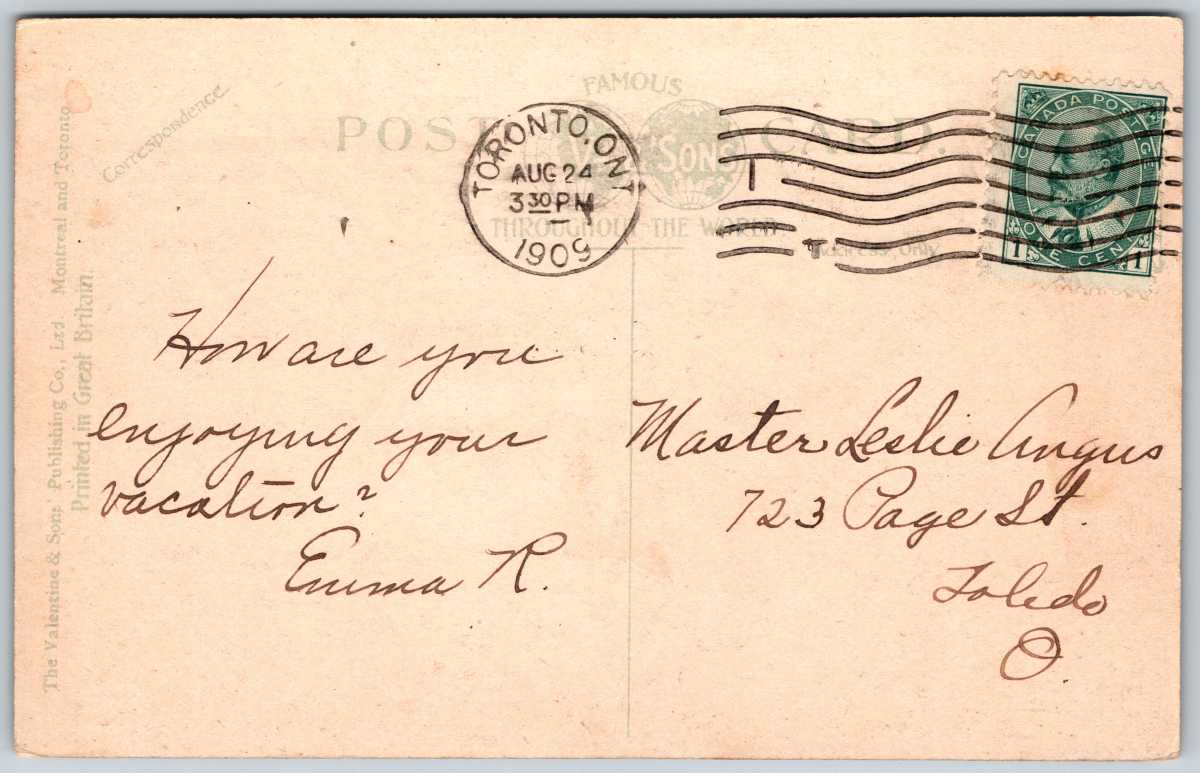 The Valentine & Sons Publishing Co., Ltd Montreal and Toronto
Printed in Great Britain.
Correspondence
FAMOUS
POST CARD.
SONS
THROUGHOUT THE WORLD
Address Only
TORONTO, ONT
AUG 24
3 30 PM
1909
CANADA POSTAGE
1 ONE CENT 1
How are you
enjoying your
vacation?
Emma R.
Master Leslie Angus
723 Page St.
Toledo
O.